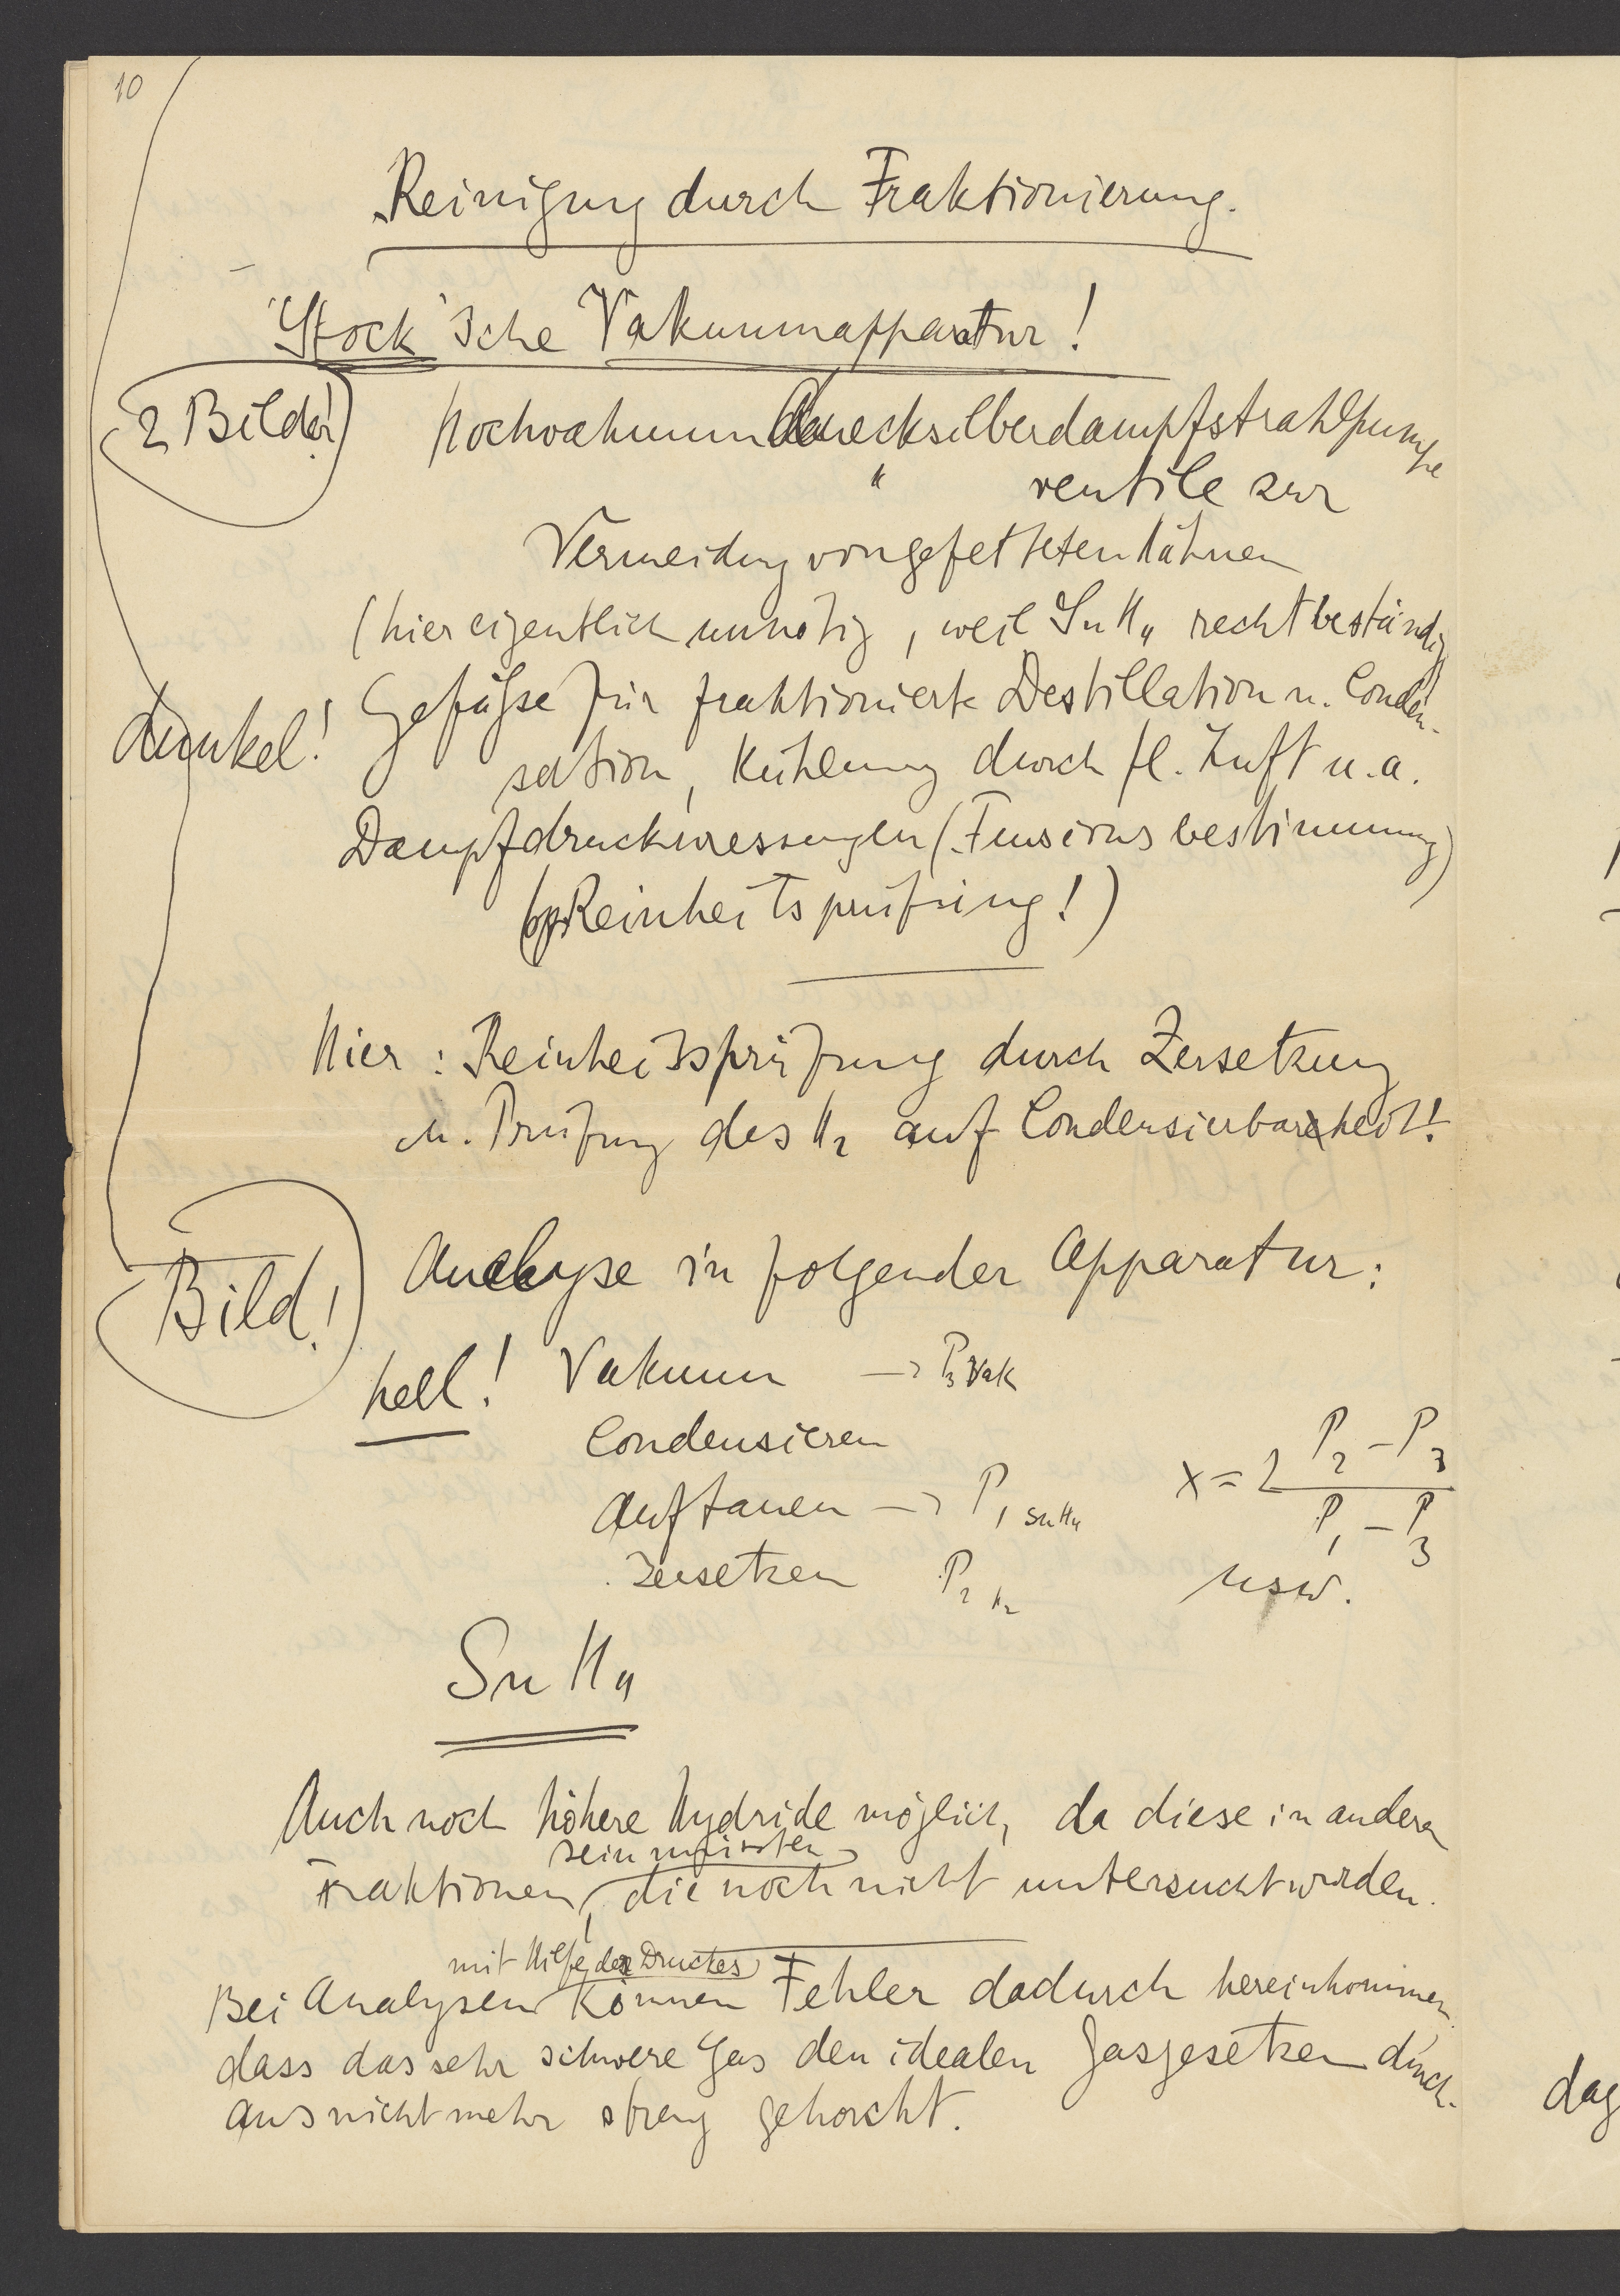 10
Reinigung durch Fraktionierung.
Stock'sche Vakuumapparatur!
2 Bilder! Hochvakuum Quecksilberdampfstrahlpumpe
" ventile zur
Vermeidung von gefetteten Hähnen
(hier eigentlich unnötig, weil SnH₄ recht beständig
dunkel! Gefäße für fraktionierte Destillation u. Conden-
sation, Kühlung durch fl. Luft u.a.
Dampfdruckmessungen (Tensionsbestimmung)
Reinheitsprüfung!)
Hier: Reinheitsprüfung durch Zersetzung
u. Prüfung des H₂ auf Condensierbarkeit!
Bild! Analyse in folgender Apparatur:
hell! Vakuum → P₃ Vak
Condensieren
Auftauen → P₁ SnH₄
Zersetzen P₂ H₂
x = 2 (P₂ - P₃) / (P₁ - P₃)
usw.
SnH₄
Auch noch höhere Hydride möglich, da diese in andern
sein müssten
Fraktionen, die noch nicht untersucht wurden.
mit Hilfe des Druckes
Bei Analysen können Fehler dadurch hereinkommen,
dass das sehr schwere Gas den idealen Gasgesetzen durch-
aus nicht mehr streng gehorcht.
dag